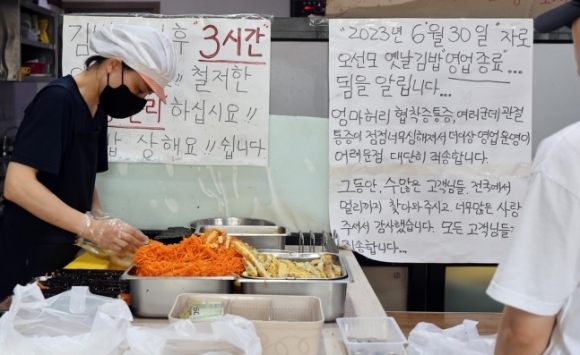 김밥
후 "3시간"
철저한
하십시요!!
밥 상해요!! 쉽니다
"2023년 6월 30일" 자로
오선모 옛날김밥 "영업 종료"...
됨을 알립니다...
엄마허리 협착증통증, 여러군데 관절
통증이 점점너무심해져서 더이상 영업운영이
어려운점 대단히 죄송합니다.
그동안, 수많은 고객님들, 전국에서
멀리까지 찾아와주시고, 너무많은 사랑
주셔서 감사했습니다. 모든 고객님들
죄송합니다...